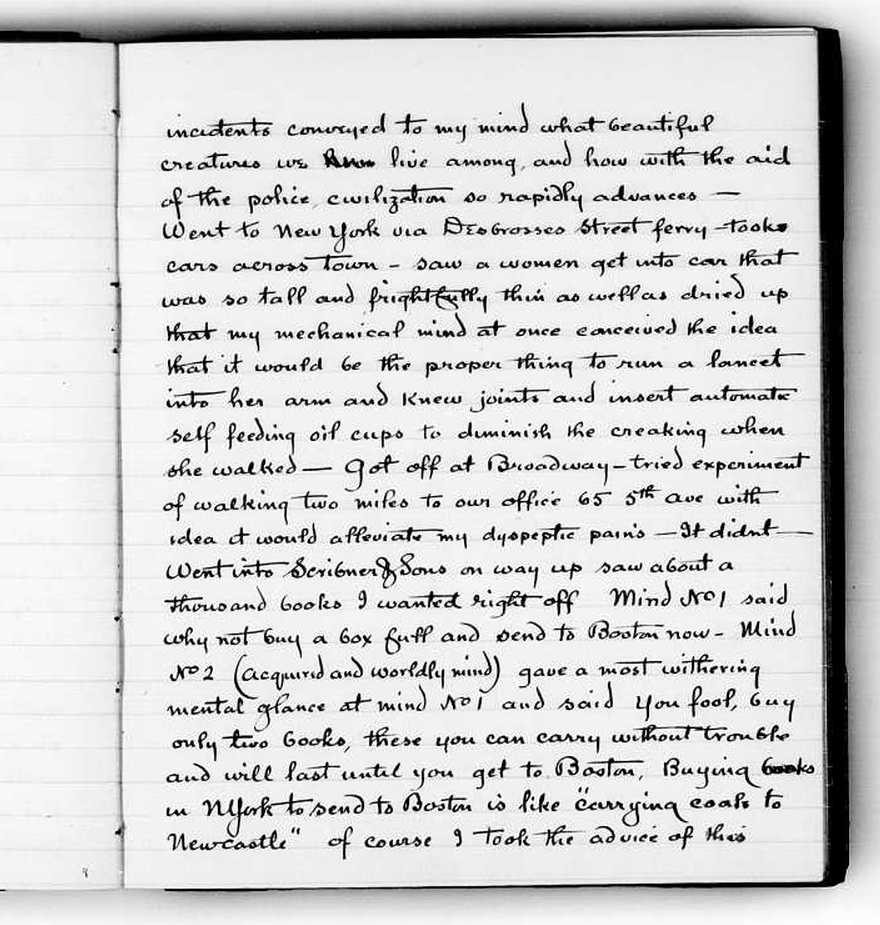 incidents conveyed to my mind what beautiful
creatures we live among, and how with the aid
of the police, civilization so rapidly advances —
Went to New York via Desbrosses Street ferry – took
cars across town – saw a women get into car that
was so tall and frightfully thin as well as dried up
that my mechanical mind at once conceived the idea
that it would be the proper thing to run a lancet
into her arm and knew joints and insert automatic
self feeding oil cups to diminish the creaking when
she walked — Got off at Broadway – tried experiment
of walking two miles to our office 65 5th ave with
idea it would alleviate my dyspeptic pains — It didnt —
Went into Scribner & Sons on way up saw about a
thousand books I wanted right off Mind No 1 said
why not buy a box full and send to Boston now – Mind
No 2 (acquired and worldly mind) gave a most withering
mental glance at mind No 1 and said You fool, buy
only two books, these you can carry without trouble
and will last until you get to Boston, Buying books
in NYork to send to Boston is like "carrying coals to
Newcastle" of course I took the advice of this